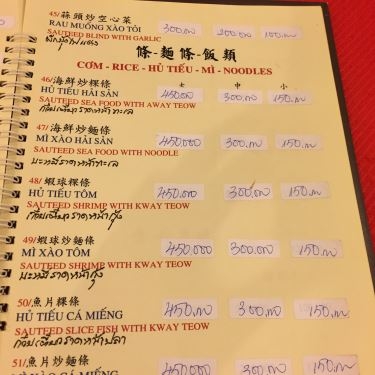 45/ 蒜頭炒空心菜
RAU MUỐNG XÀO TỎI 300.000 200.000 100.000
SAUTEED BLIND WITH GARLIC
條-麵條-飯類
CƠM - RICE - HỦ TIẾU - MÌ - NOODLES
中 小
46/ 海鮮炒粿條
HỦ TIẾU HẢI SẢN 450,000 300.000 150.m
SAUTEED SEA FOOD WITH AWAY TEOW
ก๋วยเตี๋ยวราดหน้าทะเล
47/ 海鮮炒麵條
MÌ XÀO HẢI SẢN 450,000 300.000 150.m
SAUTEED SEA FOOD WITH NOODLE
บะหมี่ราดหน้าทะเล
48/ 蝦球粿條
HỦ TIẾU TÔM 450.m 300.m 150.m
SAUTEED SHRIMP WITH KWAY TEOW
ก๋วยเตี๋ยวราดหน้ากุ้ง
49/ 蝦球炒麵條
MÌ XÀO TÔM 450.000 300.m 150.m
SAUTEED SHRIMP WITH KWAY TEOW
บะหมี่ราดหน้ากุ้ง
50/ 魚片粿條
HỦ TIẾU CÁ MIẾNG 450.m 300.m 150.m
SAUTEED SLICE FISH WITH KWAY TEOW
ก๋วยเตี๋ยวราดหน้าปลา
51/ 魚片炒麵條
MÌ XÀO CÁ MIẾNG 450.m 300.m 150.m